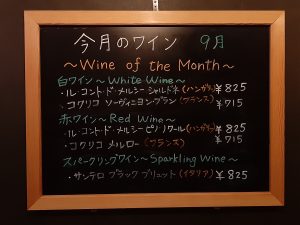 今月のワイン 9月
～Wine of the Month～
白ワイン～White Wine～
・ル・コント・ド・メルシー シャルドネ (ハンガリー) ¥825
・コクリコ ソーヴィニヨン・ブラン (フランス) ¥715
赤ワイン～Red Wine～
・ル・コント・ド・メルシー ピノ・ノワール (ハンガリー) ¥825
・コクリコ メルロー (フランス) ¥715
スパークリングワイン～Sparkling Wine～
・サンテロ ブラック ブリュット (イタリア) ¥825